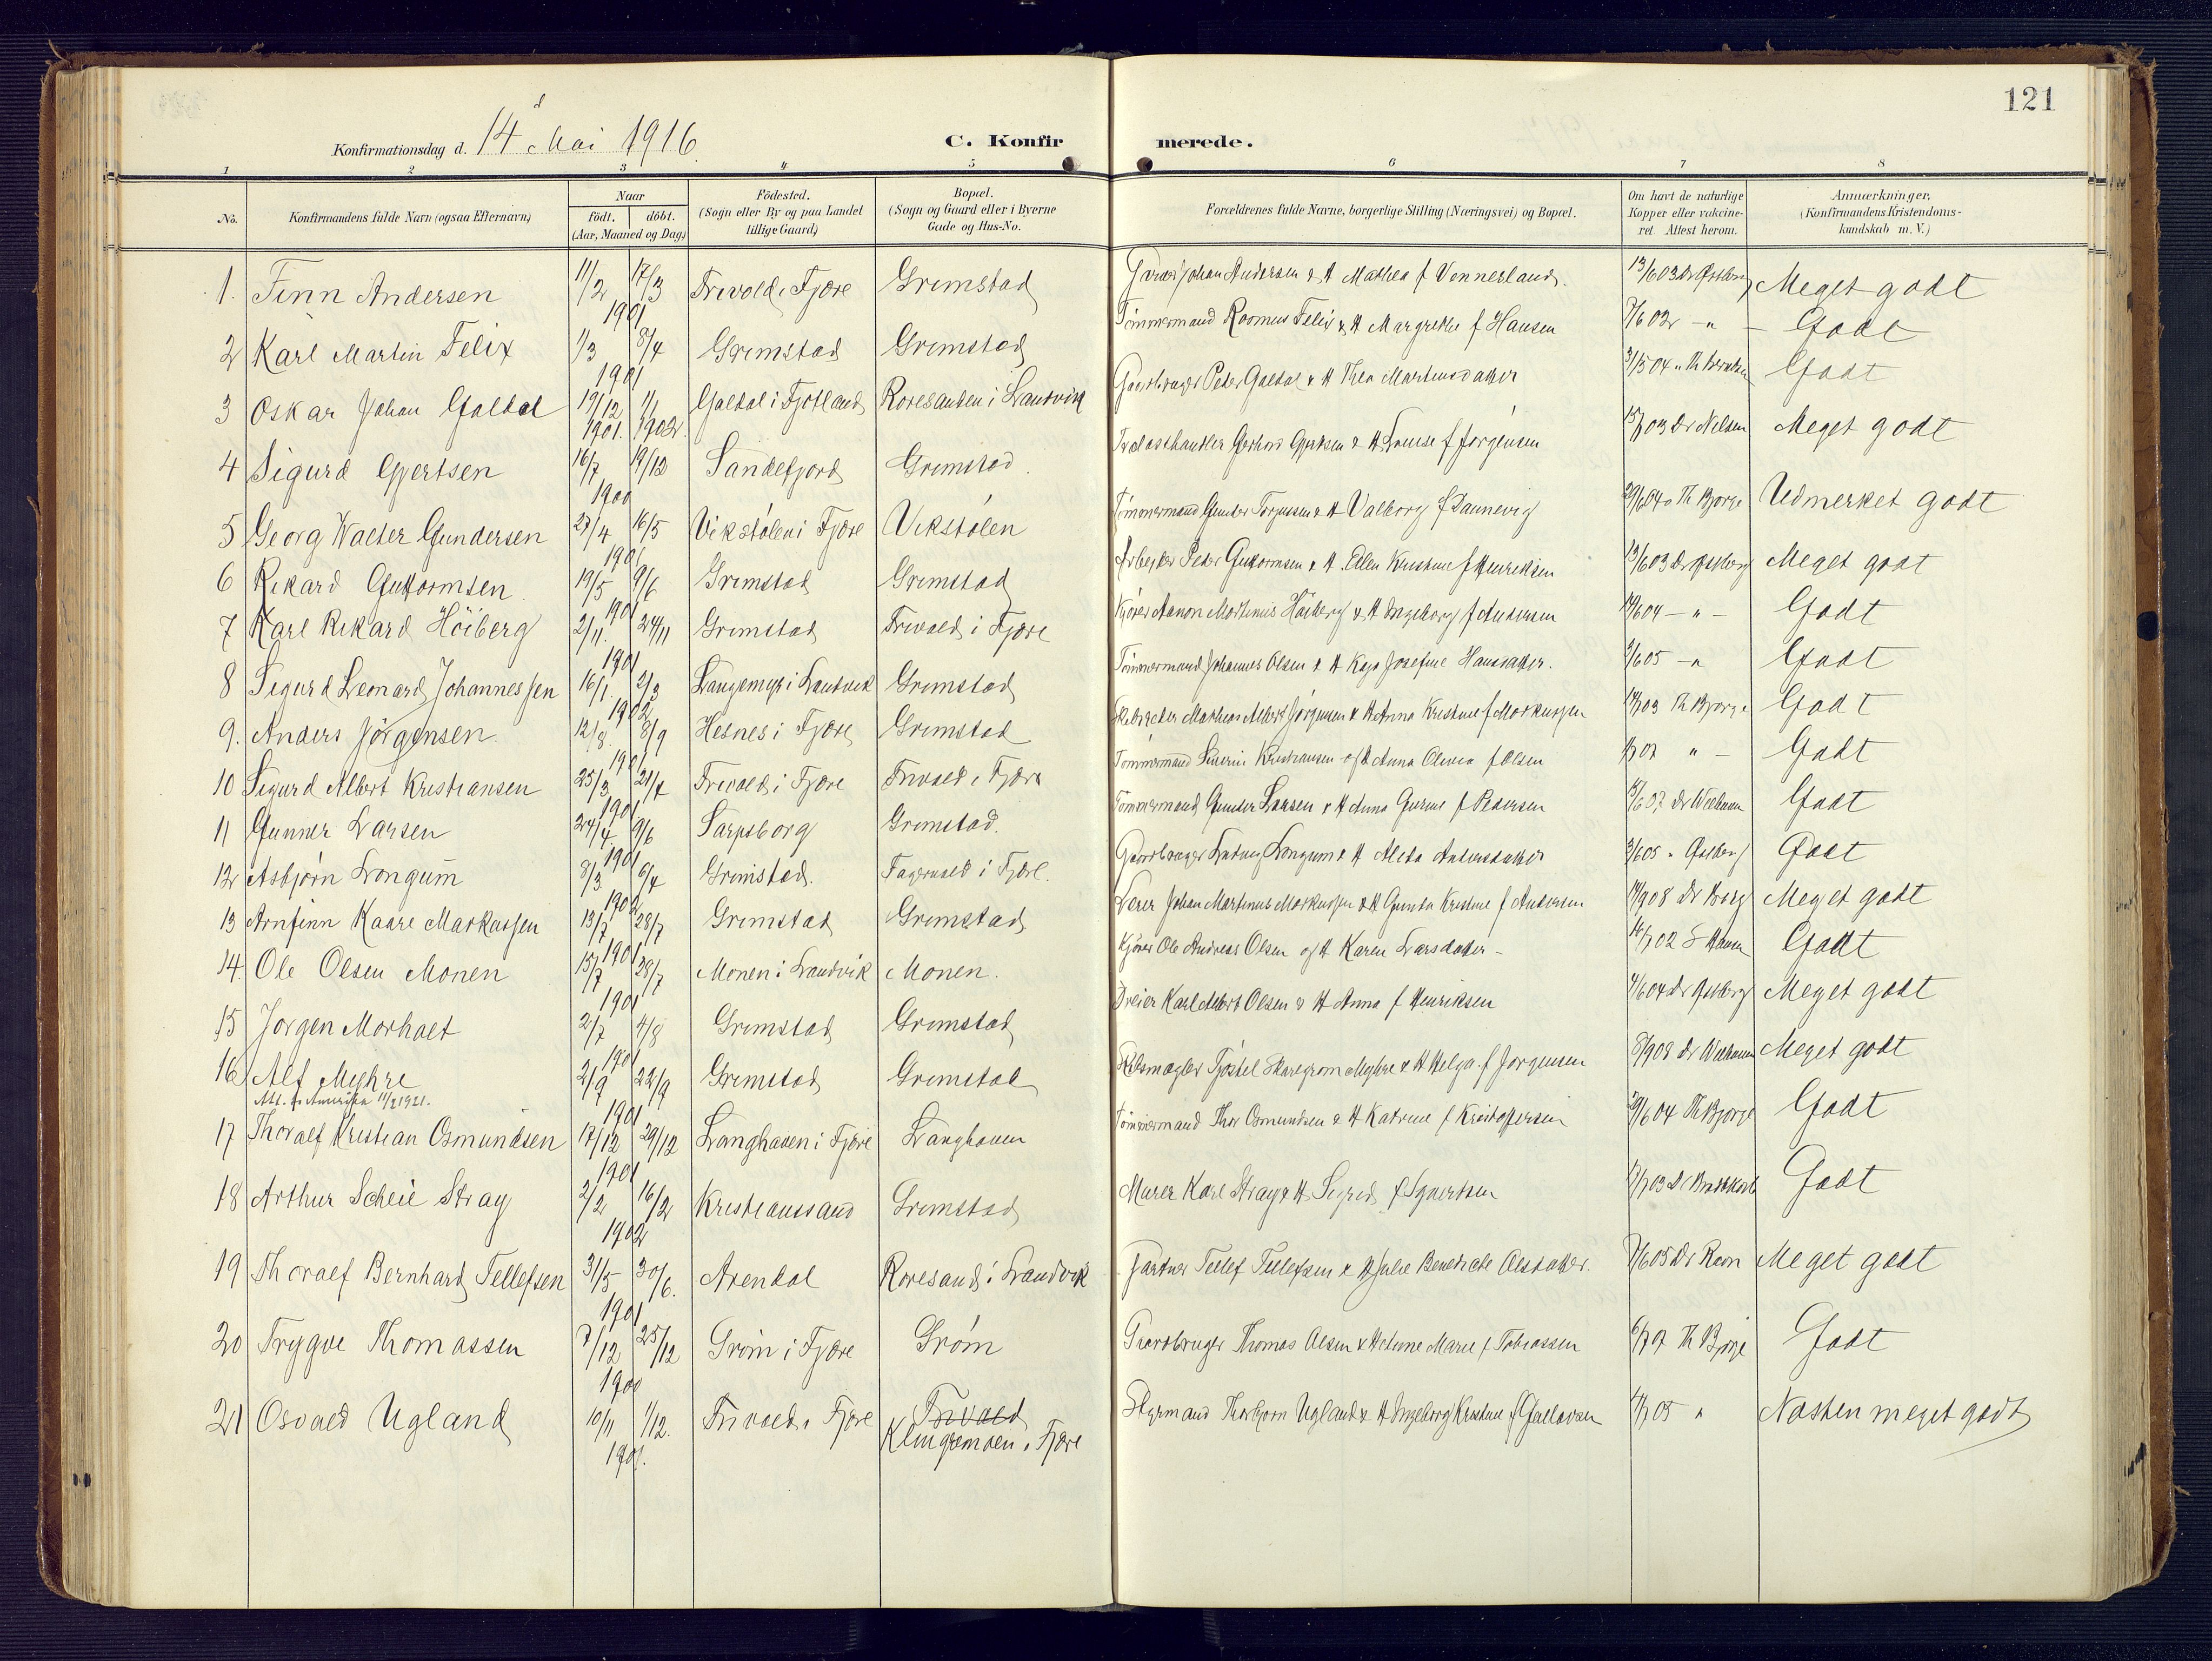 121
Konfirmationsdag d. 14 d Mai 1916.
C. Konfirmerede.
1 2 3 4 5 6 7 8
No.
Konfirmandens fulde Navn (ogsaa Efternavn)
Naar
födt. döbt.
(Aar, Maaned og Dag)
Födested.
(Sogn eller By og paa Landet
tillige Gaard)
Bopæl.
(Sogn og Gaard eller i Byerne
Gade og Hus-No.
Forældrenes fulde Navne, borgerlige Stilling (Næringsvei) og Bopæl.
Om havt de naturlige
Kopper eller vakcine-
ret Attest herom.
Anmærkninger.
(Konfirmandens Kristendoms-
kundskab m. V.)
1. Finn Andersen 11/2 17/3 1901 Frivold i Fjære Grimstad Johan Andersen & H Mathea f Vennesland. 13/6 03 Dr Østberg Meget godt
2 Karl Martin Felix 1/3 8/4 1901 Grimstad Grimstad Tömmermand Rasmus Felix & H Margrethe f Hansen 7/6 02 - " - Godt
3 Oskar Johan Galdal 19/12 1901. 1/1 1902. Galdal i Fjotland Roresanden i Landvik Gaardbruger Peder Galdal & H Thea Martinusdatter 3/5 04 Godt
4 Sigurd Gjertsen 16/7 19/12 1900 Sandefjord Grimstad. Gerhard Gjertsen & H Louise f Jørgensen 03 Dr Nilsen Meget godt
5 Georg Walter Gundersen 27/4 16/5 1901 Vikstølen i Fjære Vikstølen Tömmermand Gunder Torgussen & H Valborg f Dannevig 29/6 04 Th Bjorge Udmerket godt
6 Rikard Guttormsen. 19/5 9/6 1901 Grimstad Grimstad Arbeider Peder Guttormsen & H. Edle Kristine f Henriksen 13/6 03 Dr Østberg Meget godt
7 Karl Rikard Höiberg 2/11. 24/11 1901 Grimstad Frivold i Fjære Kjører Aanon Martinius Höiberg & H Ingeborg f Andersen 14/6 04 - " - Godt
8 Sigurd Leonard Johannessen 16/1. 2/3 1902 Langemyr i Landvik Grimstad Tömmermand Johannes Olsen & H Kaja Josefine Hansdatter. 9/6 05 - " Godt
9. Anders Jörgensen. 12/8. 8/9 1901 Hesnes i Fjære Grimstad Mathias Albert Jörgensen & H Anna Kristine f Markussen 03 Th Bjorge Godt
10 Sigurd Albert Kristiansen 25/3 21/7 1901 Frivold i Fjære Frivold i Fjære Tömmermand Severin Kristiansen og H Anna Olivia f Olsen 07 " - Godt
11 Gunnar Larsen 24/4. 9/6 1901 Sarpsborg Grimstad. Tömmermand Gunder Larsen & H Anna Gurine f Pedersen 07 Dr Godt
12 Asbjörn Longum 8/3 6/4 1902 Grimstad. Fagervold i Fjære. Gaardbruger Ludvig Longum & H Aleta Andersdatter 3/6 05 " Østberg Godt
13 Arnfinn Kaare Markussen 13/7 28/7 1901 Grimstad Grimstad Lærer Johan Martinus Markussen & H Gunda Kristine f Andersen 14/9 08 Dr Borg Meget godt
14. Ole Olsen Monen 15/7 28/7 1901 Monen i Landvik Monen. Kjører Ole Andreas Olsen og H Karen Larsdatter - 16/7 02 Godt
15 Jorgen Morholt 2/7 4/8 1901 Grimstad Grimstad Dreier Karl Albert Olsen & H Anna f Henriksen 4/6 04 Dr Østberg Meget godt
16 Alf Myhre 2/9 22/9 1901 Grimstad Grimstad Skibsmægler Tjöstel Myhre & H Helga f Jørgensen 8/9 08 Dr Meget godt
Att. t. Amerika 11/2 1921.
17 Thoralf Kristian Osmundsen 17/12 29/12 1901 Langhaven i Fjære Langhaven Tömmermand Thor Osmundsen & H Katrine f Kristoffersen 29/6 04 Th Bjorge Godt
18 Arthur Scheie Stray 2/2 16/2 1902 Kristianssand Grimstad Murer Karl Stray & H. Sigrid f Syvertsen 03 Dr Godt
19 Thoralf Bernhard Tellefsen 31/5 30/6. 1901 Arendal Roresand i Landvik Gartner Tellef Tellefsen & H Julie Benedicte Olsdatter. 7/6 05 Dr Meget godt
20 Trygve Thomassen 7/12 25/12 1900 Gröm i Fjære Gröm Gaardbruger Thomas Olsen & H Anne Marie f Tobiassen 6/7 07 Th Bjorge Godt
21 Osvald Ugland 10/11 1/12. 1901. Frivold i Fjære Frivold Styrmand Thorbjorn Ugland & H Ingeborg Kristine f Gullovsen 05 " Næsten meget godt
Klingremoen i Fjære